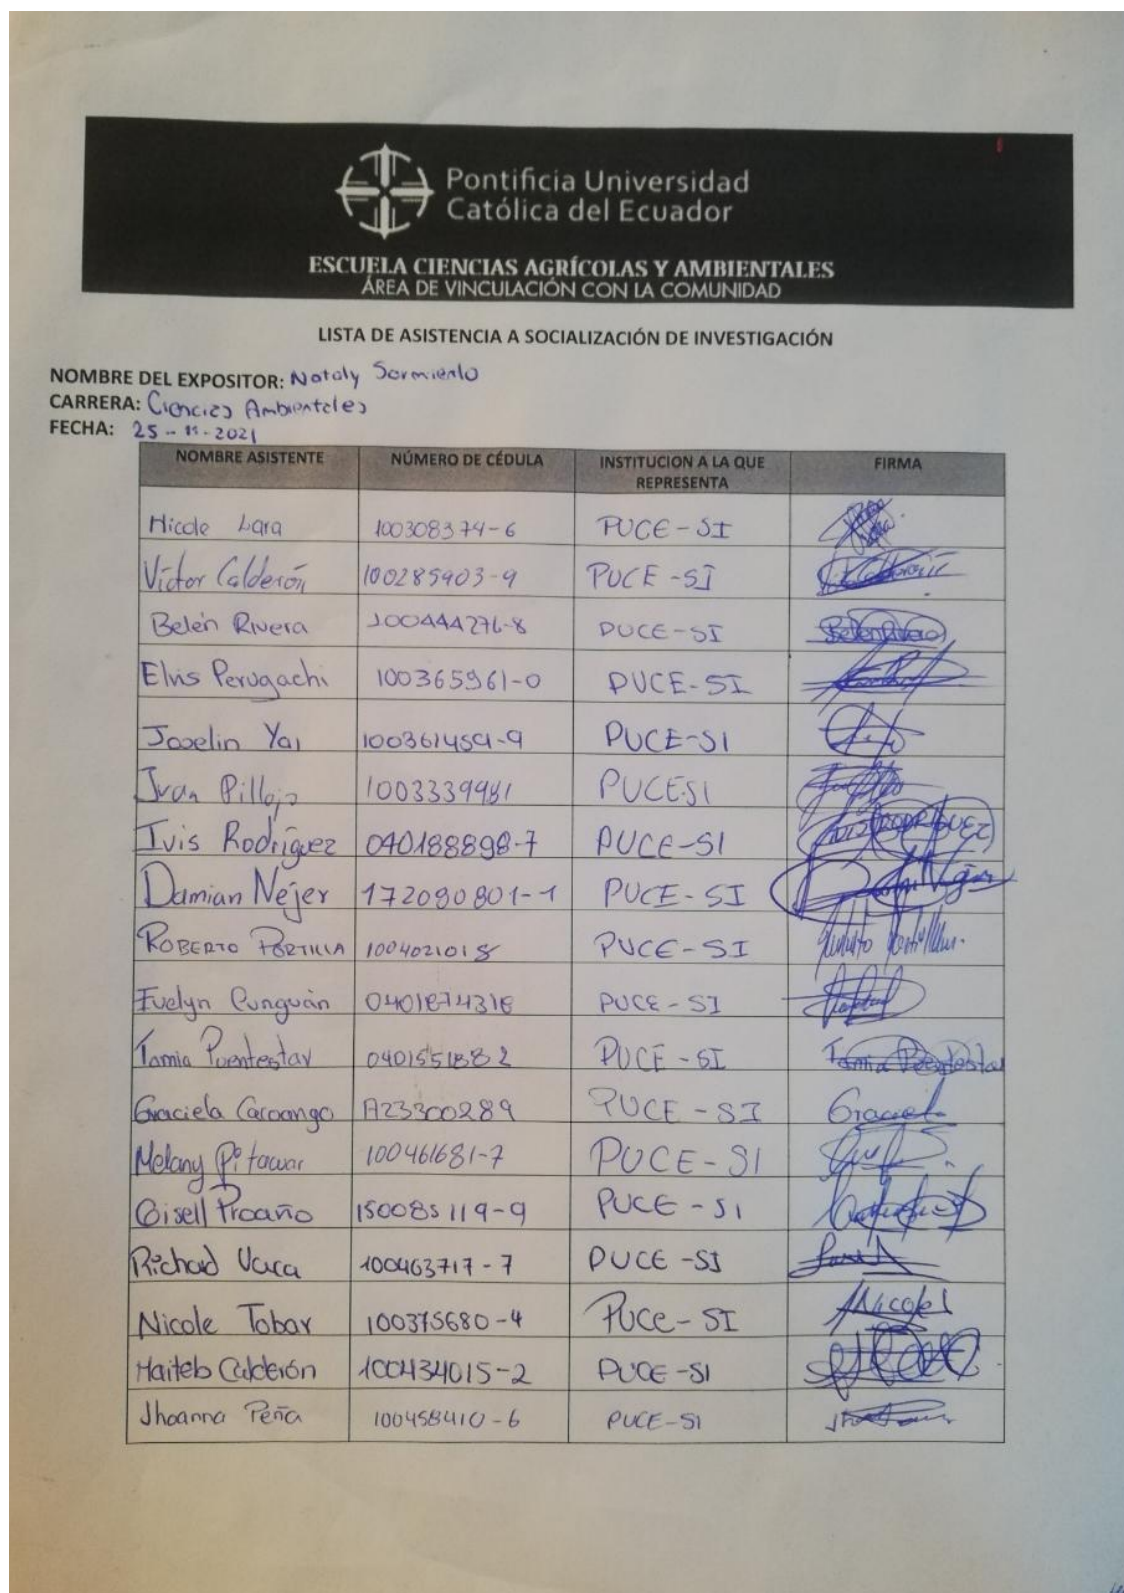 Pontificia Universidad
Católica del Ecuador
ESCUELA CIENCIAS AGRÍCOLAS Y AMBIENTALES
ÁREA DE VINCULACIÓN CON LA COMUNIDAD
LISTA DE ASISTENCIA A SOCIALIZACIÓN DE INVESTIGACIÓN
NOMBRE DEL EXPOSITOR: Nataly Sarmiento
CARRERA: Ciencias Ambientales
FECHA: 25-11-2021
NOMBRE ASISTENTE NÚMERO DE CÉDULA INSTITUCION A LA QUE REPRESENTA FIRMA
Nicole Lara 100308374-6 PUCE-SI
Víctor Calderón 100285903-9 PUCE-SI
Belén Rivera 100444276-8 PUCE-SI Belen Rivera
Elvis Perugachi 100365961-0 PUCE-SI
Joselin 100361459-9 PUCE-SI
Juan Pillajo 1003339981 PUCESI
Ivis Rodríguez 040188898-7 PUCE-SI RODRIGUEZ
Damian Nejer 172090801-1 PUCE-SI
ROBERTO PORTILLA 1004021018 PUCE-SI
Evelyn Cunguán PUCE-SI
Tamia Puentestar 0401551882 PUCE-SI Tamia Puentestar
Graciela Caroango A23300289 PUCE-SI Graciela
Melany 100461681-7 PUCE-SI
Gisell Proaño 150085119-9 PUCE-SI
Richad Vaca 100463717-7 PUCE-SI
Nicole Tobar 100375680-4 PUCE-SI Nicole
Calderón 100434015-2 PUCE-SI
Jhoanna Peña 100458410-6 PUCE-SI